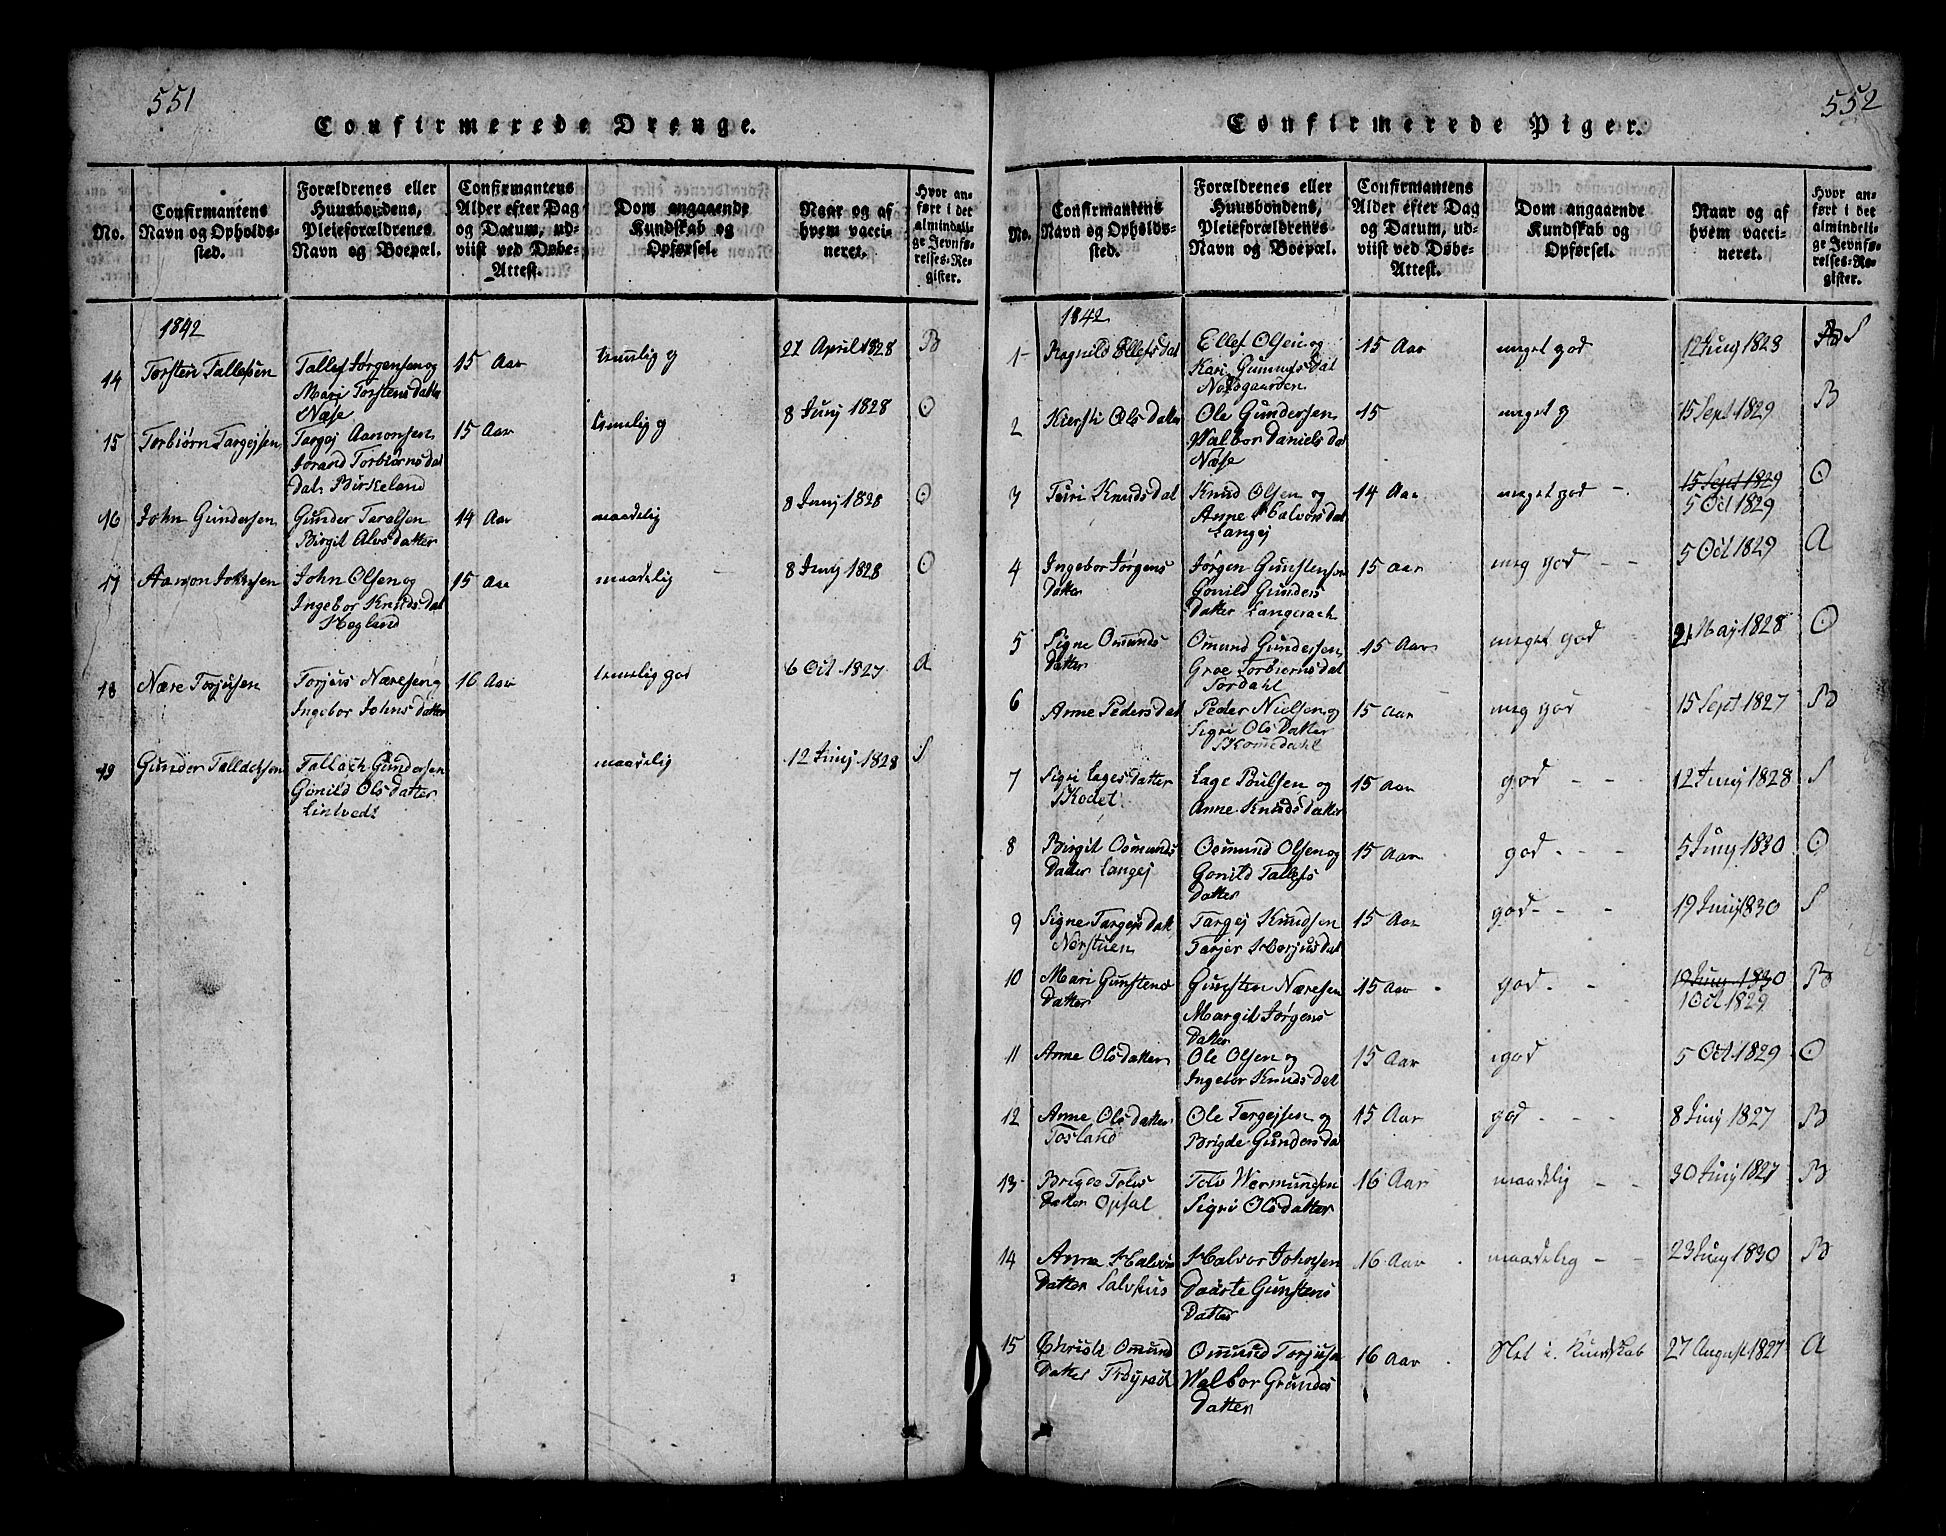 551
Confirmerede Drenge.
No.
Confirmantens
Navn og Opholds-
sted.
Forældrenes eller
Huusbondens,
Pleieforældrenes
Navn og Boepæl.
Confirmantens
Alder efter Dag
og Datum, ud-
viist ved Døbe-
Attest.
Dom angaaende
Kundskab og
Opførsel.
Naar og af
hvem vacci-
neret.
Hvor an-
ført i det
almindeli-
ge Jevnfø-
relses-Re-
gister.
1842
14
Torsten Tallefsen
Tallef Jørgensen og
Mari Torstens datter
Næse
15 Aar
temelig g
27 April 1828
B
15
Torbiørn Targejsen
Targej Aanonsen
Jorand Torbiørns dat
dal Birkeland
15 Aar
temelig g
8 Junj 1828
O
16
John Gundersen
Gunder Taralsen
Birgit Alvs datter
14 Aar
maadelig
8 Junj 1828
O
17
Aanon Johnsen
John Olsen og
Ingebor Knuds dat
Hegland
15 Aar
maadelig
8 Junj 1828
O
18
Nære Torjusen
Torjus Næresen og
Ingebor Johns datter
16 Aar
temelig god
6 Oct 1827
A
19
Gunder Tallachsen
Tallach Gundersen
Gonild Ols datter
Lintvedt
maadelig
12 Junj 1828
S
552
Confirmerede Piger.
No.
Confirmantens
Navn og Opholds-
sted.
Forældrenes eller
Huusbondens,
Pleieforældrenes
Navn og Boepæl.
Confirmantens
Alder efter Dag
og Datum, ud-
viist ved Døbe-
Attest.
Dom angaaende
Kundskab og
Opførsel.
Naar og af
hvem vacci-
neret.
Hvor an-
ført i det
almindeli-
ge Jevnfø-
relses-Re-
gister.
1842
1
Ragnild Ellefs dat
Ellef Olsen og
Kari Gunnufs dat
15 Aar
meget god
12 Junj 1828
S
2
Kiersti Ols datter
Ole Gundersen
Walbor Daniels da
Næse
15
meget g
15 Sept 1829
B
3
Teiri Knuds dat
Knud Olsen og
Anne Halvors dat
Langej
14 Aar
meget god
15 Sept 1829
5 Oct 1829
O
4
Ingebor Jørgens
datter
Jørgen Gunstensen
Gonild Gunders
datter Langerach
15 Aar
meg god
5 Oct 1829
A
5
Signe Omunds
datter
Omund Gundersen
Groe Torbiorns dat
Tordahl
15 Aar
meget god
21 Maj 1828
O
6
Anne Peders dat
Peder Nielsen og
Sigri Ols Datter
Skomedahl
15 Aar
meg god
15 Sept 1827
B
7
Sigri Lages datter
Skodet
Lage Poulsen og
Anne Knuds datter
15 Aar
god
12 Junj 1828
S
8
Birgit Osmunds
Datter Langej
Osmund Olsen og
Gonild Tallefs
datter
15 Aar
god
5 Junj 1830
O
9
Signe Targejs dat
Nørstuen
Targej Knudsen
Tarjer Herjus dat
15 Aar
god
19 Junj 1830
S
10
Mari Gunstens
datter
Gunsten Næresen
Margit Jørgens
datter
15 Aar
god
19 Junj 1830
1 Oct 1829
B
11
Anne Ols datter
Ole Olsen og
Ingebor Knuds dat
15 Aar
god
5 Oct 1829
O
12
Anne Ols datter
Tosland
Ole Targejsen og
Brigde Gunders da
15 Aar
god
8 Junj 1827
B
13
Brigde Tolvs
datter Opsal
Tolv Wermundsen
Sigri Ols datter
16 Aar
maadelig
30 Junj 1827
B
14
Anne Halvors
Datter Salvstus
Halvor Johnsen
Daarte Gunstens
Datter
16 Aar
maadelig
23 Junj 1830
B
15
Christi Omund
Datter
Omund Torjusen
Walbor Grundes
datter
16 Aar
Slet i Kundskab
27 August 1827
A